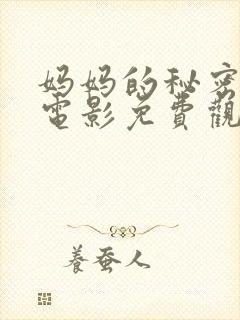 妈妈的秘密
電影免費觀
養蚕人